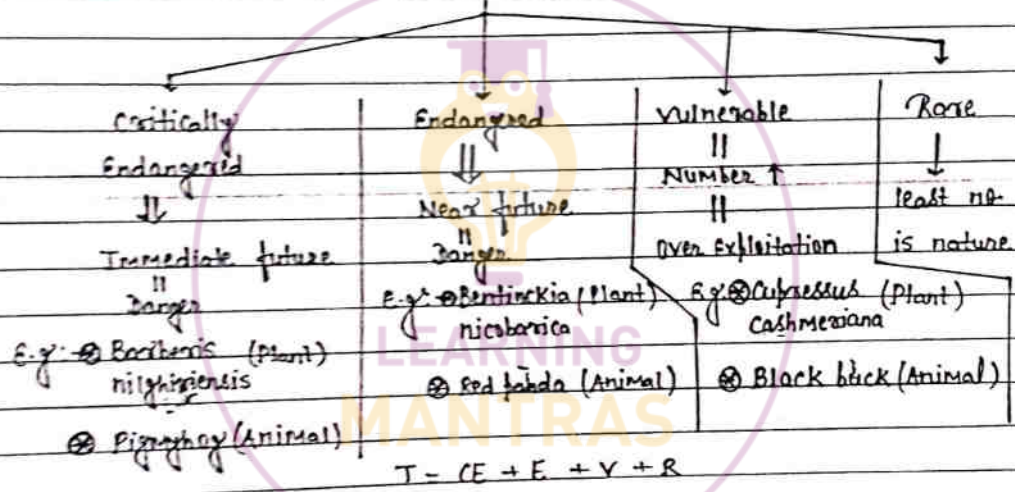 Critically
Endangered
⇓
Immediate future
||
Danger
E.g:- ⊛ Barberis (Plant)
nilghiriensis
⊛ Pigmyhog (Animal)
Endangered
⇓
Near future
||
Danger
E.g:- ⊛ Bentinckia (Plant)
nicobarica
⊛ Red panda (Animal)
Vulnerable
||
Number ↑
||
Over Exploitation
E.g. ⊛ Cupressus (Plant)
Cashmeriana
⊛ Black buck (Animal)
Rare
↓
least no.
is nature
T = CE + E + V + R
LEARNING
MANTRAS